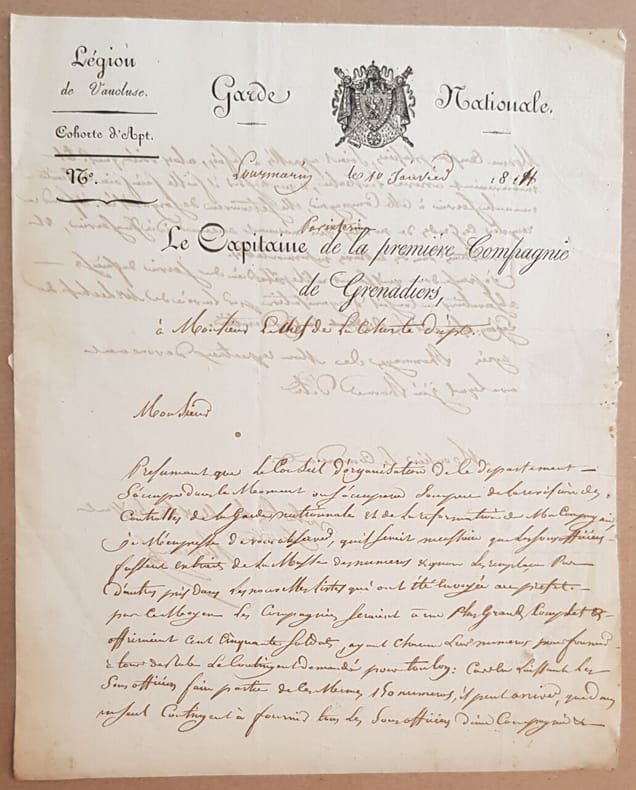 Légion
de Vaucluse.
Cohorte d'Apt.
N°.
Garde Nationale.
Lourmarin le 10 Janvier 1814
Par interim
Le Capitaine de la première Compagnie
de Grenadiers,
à Monsieur Le chef de la Cohorte d'apt.
Monsieur
Presumant que le Conseil d'organisation de le departement
S'occupe dans le Moment ou s'occupera Sous peu de la revision des
Controlles de la Garde nationnale et de la reformation de Ma Compagnie
Je M'empresse de vous observer, qu'il serait necessaire que les Sous officiers
fussent extraits de la Masse des numeros & qu'on les remplaça Par
d'autres pris dans les nouvelles listes qui ont été envoyés au prefet.
par ce Moyen les Compagnies seraient à un Plus Grand Complet &
offriraient cent Cinquante Soldats, ayant chacun Leur numero pour fournir
à tour de role le Contingent demandé pour toulon: Car en Laissant les
Sous officiers faire partie de la Meme 150 numeros, il peut arriver, que dans
un seul Contingent à fournir tous les Sous officiers d'une Compagnie